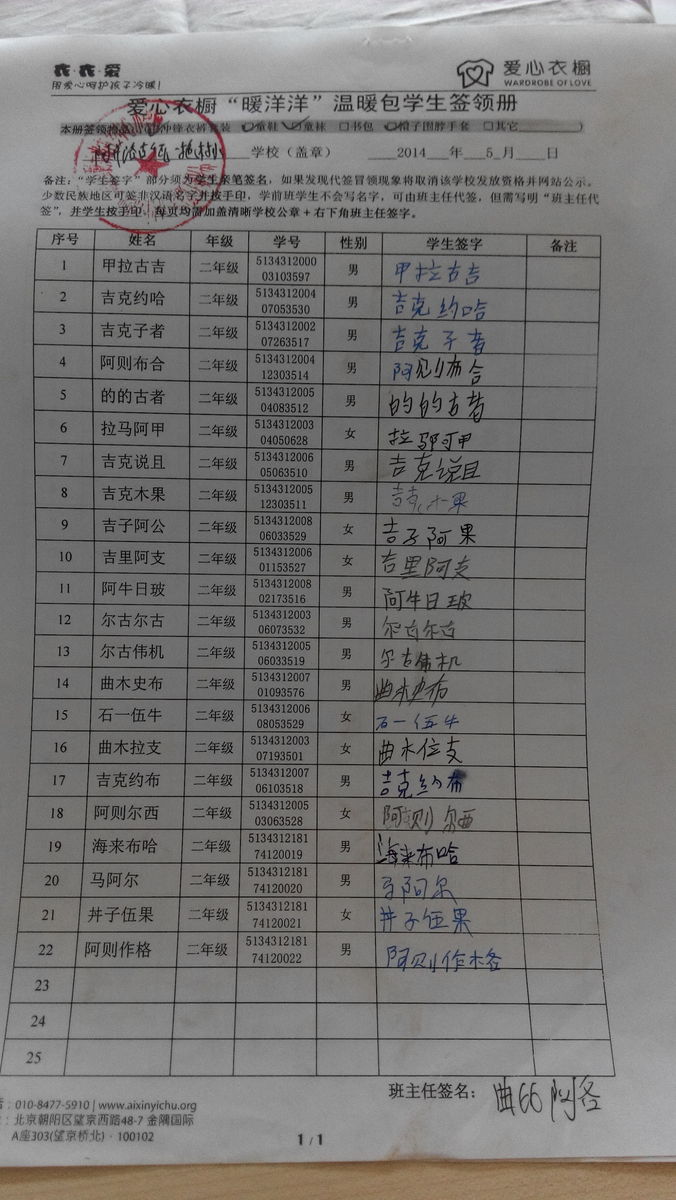 衣·衣·爱
用爱心呵护孩子冷暖!
爱心衣橱
WARDROBE OF LOVE
爱心衣橱“暖洋洋”温暖包学生签领册
本册签领物品 冲锋衣裤套装 童鞋 童袜 □书包 帽子围脖手套 □其它
学校（盖章） 2014 年 5 月 日
备注：“学生签字”部分须为学生亲笔签名，如果发现代签冒领现象将取消该学校发放资格并网站公示。
少数民族地区可签非汉语名字并按手印，学前班学生不会写名字，可由班主任代签，但需写明“班主任代
签”，并学生按手印，每页均需加盖清晰学校公章+右下角班主任签字。
序号 姓名 年级 学号 性别 学生签字 备注
1 甲拉古吉 二年级 513431200003103597 男 甲拉古吉
2 吉克约哈 二年级 513431200407053530 男 吉克约哈
3 吉克子者 二年级 513431200207263517 男 吉克子者
4 阿则布合 二年级 513431200412303514 男 阿则布合
5 的的古者 二年级 513431200504083512 男 的的古者
6 拉马阿甲 二年级 513431200304050628 女 拉马阿甲
7 吉克说且 二年级 513431200605063510 男 吉克说且
8 吉克木果 二年级 513431200512303511 男 吉克木果
9 吉子阿公 二年级 513431200806033529 女 吉子阿果
10 吉里阿支 二年级 513431200601153527 女 吉里阿支
11 阿牛日玻 二年级 513431200802173516 男 阿牛日玻
12 尔古尔古 二年级 513431200306073532 男 尔古尔古
13 尔古伟机 二年级 513431200506033519 男 尔古伟机
14 曲木史布 二年级 513431200701093576 男 曲木史布
15 石一伍牛 二年级 513431200608053529 女 石一伍牛
16 曲木拉支 二年级 513431200307193501 女 曲木位支
17 吉克约布 二年级 513431200706103518 男 吉克约布
18 阿则尔西 二年级 513431200503063528 女 阿则尔西
19 海来布哈 二年级 513431218174120019 男 海来布哈
20 马阿尔 二年级 513431218174120020 男 马阿尔
21 井子伍果 二年级 513431218174120021 女 井子伍果
22 阿则作格 二年级 513431218174120022 男 阿则作格
23
24
25
班主任签名：
: 010-8477-5910 | www.aixinyichu.org
: 北京朝阳区望京西路48-7 金隅国际
A座303(望京桥北) · 100102
1 / 1